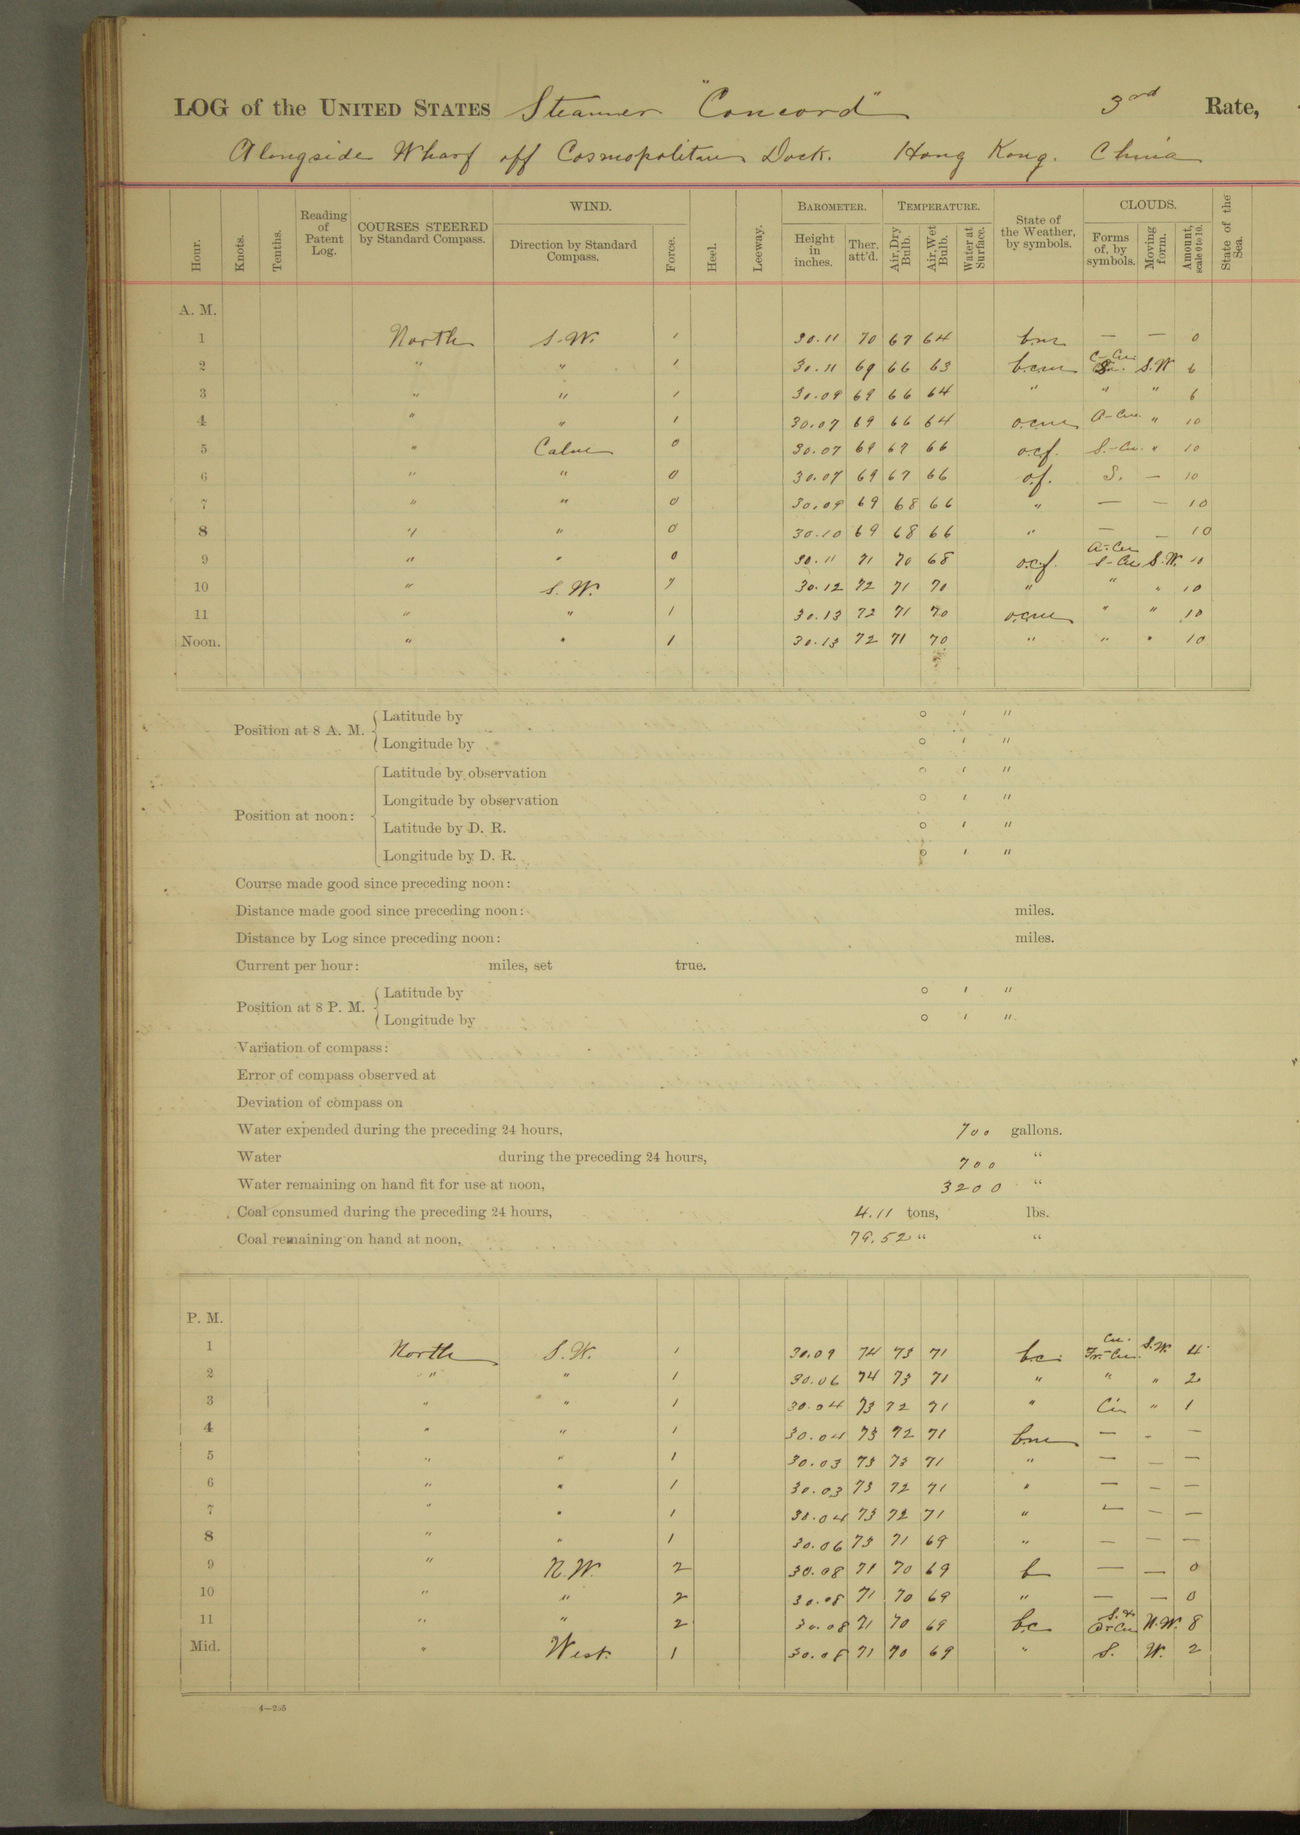 LOG of the UNITED STATES Steamer "Concord" 3rd Rate,
Alongside Wharf off Cosmopolitan Dock. Hong Kong. China
Hour. Knots. Tenths. Reading of Patent Log. COURSES STEERED by Standard Compass. WIND. Direction by Standard Compass. Force. Heel. Leeway. BAROMETER. Height in inches. Ther. att'd. TEMPERATURE. Air, Dry Bulb. Air, Wet Bulb. Water at Surface. State of the Weather, by symbols. CLOUDS. Forms of, by symbols. Moving form. Amount, scale 0 to 10. State of the Sea.
A. M.
1 North S.W. 1 30.11 70 67 64 b.m — — 0
2 " " 1 30.11 69 66 63 b.c.m C-Cu. S.W 6
3 " " 1 30.09 69 66 64 " " " 6
4 " " 1 30.07 69 66 64 o.c.m A-Cu. " 10
5 " Calm 0 30.07 69 67 66 o.c.f. S.-Cu. " 10
6 " " 0 30.07 69 67 66 o.f. S. — 10
7 " " 0 30.09 69 68 66 " — — 10
8 " " 0 30.10 69 68 66 " — — 10
9 " " 0 30.11 71 70 68 o.c.f. A-Cu S-Cu S.W. 10
10 " S.W. 1 30.12 72 71 70 " " " 10
11 " " 1 30.13 72 71 70 o.c.m " " 10
Noon. " " 1 30.13 72 71 70 " " " 10
Position at 8 A. M. Latitude by ° ′ ″
Longitude by ° ′ ″
Position at noon: Latitude by observation ° ′ ″
Longitude by observation ° ′ ″
Latitude by D. R. ° ′ ″
Longitude by D. R. ° ′ ″
Course made good since preceding noon:
Distance made good since preceding noon: miles.
Distance by Log since preceding noon: miles.
Current per hour: miles, set true.
Position at 8 P. M. Latitude by ° ′ ″
Longitude by ° ′ ″
Variation of compass:
Error of compass observed at
Deviation of compass on
Water expended during the preceding 24 hours, 700 gallons.
Water during the preceding 24 hours, 700 "
Water remaining on hand fit for use at noon, 3200 "
Coal consumed during the preceding 24 hours, 4.11 tons, lbs.
Coal remaining on hand at noon, 79.52 " "
P. M.
1 North S.W. 1 30.09 74 73 71 b.c. Cu. Fr.-Cu. S.W. 4
2 " " 1 30.06 74 73 71 " " " 2
3 " " 1 30.04 73 72 71 " Ci " 1
4 " " 1 30.04 73 72 71 b.m — - —
5 " " 1 30.03 73 73 71 " — — —
6 " " 1 30.03 73 72 71 " — — —
7 " " 1 30.04 73 72 71 " — — —
8 " " 1 30.06 73 71 69 " — — —
9 " N.W. 2 30.08 71 70 69 b — — 0
10 " " 2 30.08 71 70 69 " — — 0
11 " " 2 30.08 71 70 69 b.c N.W. 8
Mid. " West. 1 30.08 71 70 69 " S. W. 2
4—255